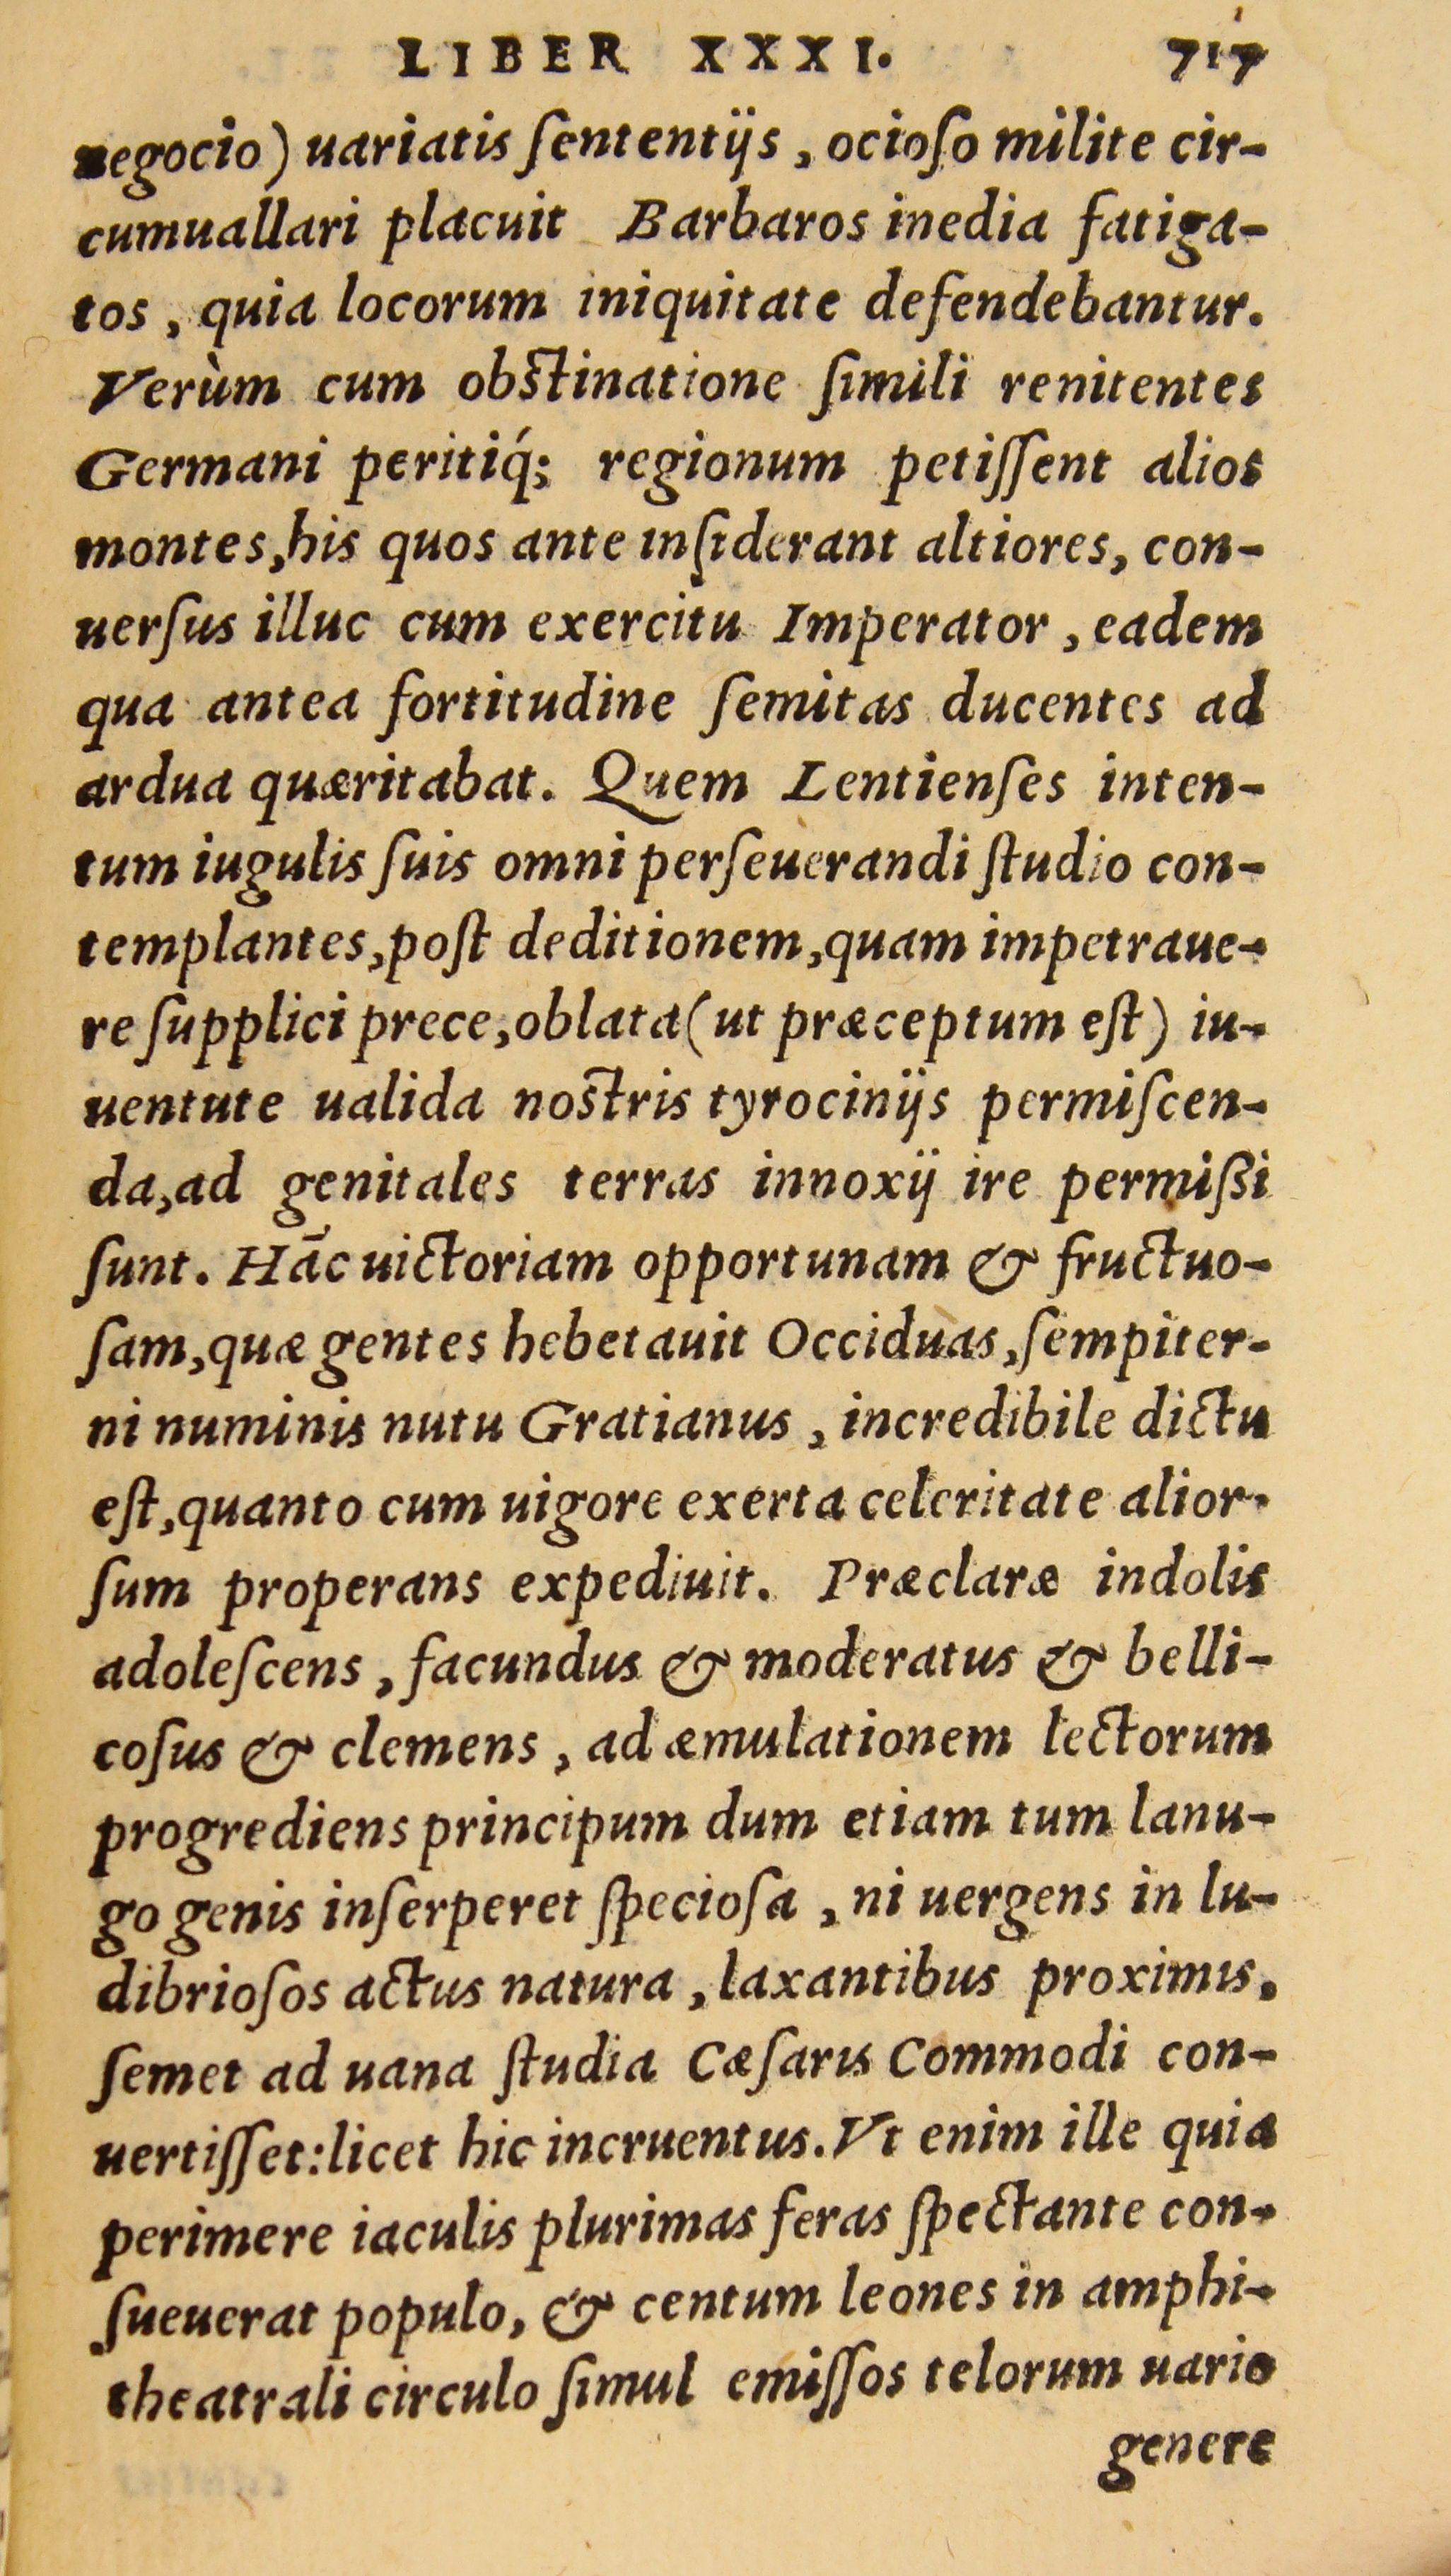 LIBER XXXI. 717
negocio) uariatis ſententijs, ocioſo milite cir-
cumuallari placuit Barbaros inedia fatiga-
tos, quia locorum iniquitate defendebantur.
Verùm cum obſtinatione ſimili renitentes
Germani peritiq́; regionum petiſſent alios
montes, his quos ante inſiderant altiores, con-
uerſus illuc cum exercitu Imperator, eadem
qua antea fortitudine ſemitas ducentes ad
ardua quæritabat. Quem Lentienſes inten-
tum iugulis ſuis omni perſeuerandi ſtudio con-
templantes, poſt deditionem, quam impetraue-
re ſupplici prece, oblata (ut præceptum eſt) iu-
uentute ualida noſtris tyrocinijs permiſcen-
da, ad genitales terras innoxij ire permißi
ſunt. Hāc uictoriam opportunam & fructuo-
ſam, quæ gentes hebetauit Occiduas, ſempiter-
ni numinis nutu Gratianus, incredibile dictu
eſt, quanto cum uigore exerta celeritate alior-
ſum properans expediuit. Præclaræ indolis
adoleſcens, facundus & moderatus & belli-
coſus & clemens, ad æmulationem lectorum
progrediens principum dum etiam tum lanu-
go genis inſerperet ſpecioſa, ni uergens in lu-
dibrioſos actus natura, laxantibus proximis,
ſemet ad uana ſtudia Cæſaris Commodi con-
uertiſſet: licet hic incruentus. Vt enim ille quia
perimere iaculis plurimas feras ſpectante con-
ſueuerat populo, & centum leones in amphi-
theatrali circulo ſimul emiſſos telorum uario
genere